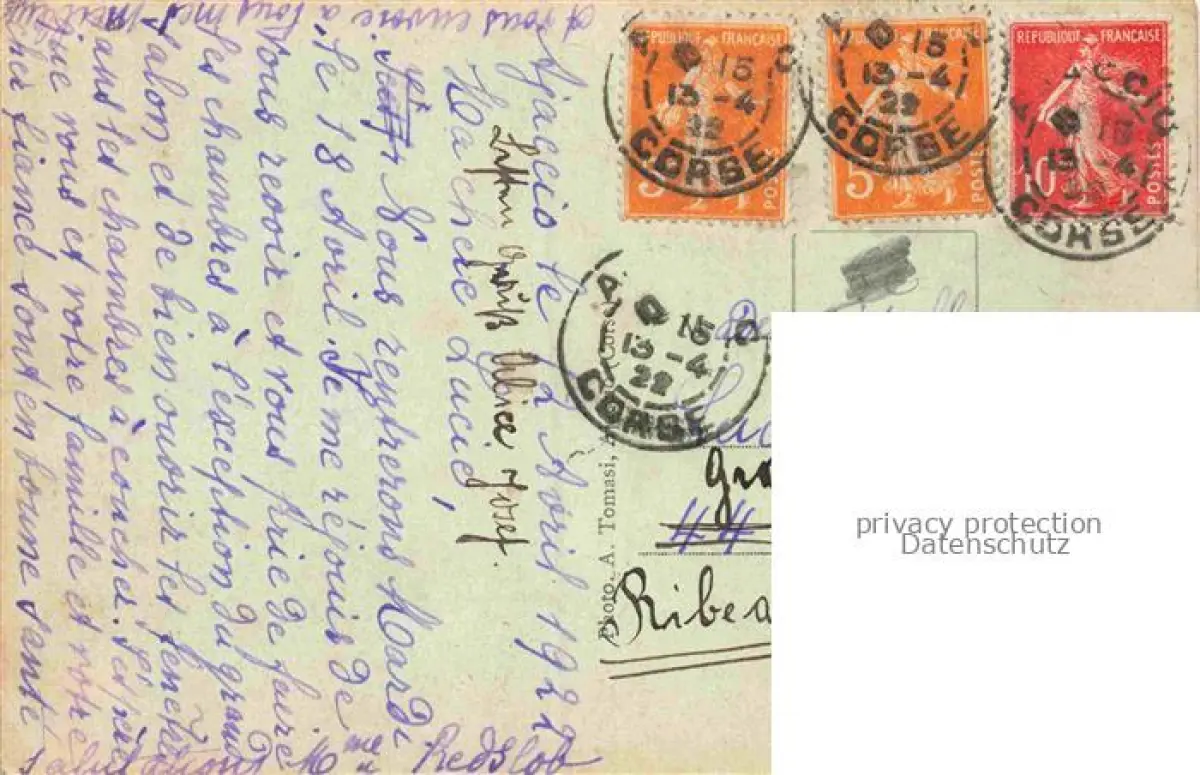 Ajaccio le 2 Avril 1922
Ma chère Lucie,
Gruß Alice Josef.
Nous rentrerons Mardi
le 18 Avril. Je me réjouis de
Vous revoir et vous prie de faire
les chambres à l'exception du grand
salon et de bien ouvrir les fenêtres
dans les chambres à coucher. J'espère
que vous et votre famille et votre
cher fiancé sont en bonne santé
et vous envoie à tous mes meilleures
salutations Mme Redslob
Photo. A. Tomasi, A
(Corse
RÉPUBLIQUE FRANÇAISE
5
POSTES
RÉPUBLIQUE FRANÇAISE
5
POSTES
RÉPUBLIQUE FRANÇAISE
10
POSTES
15
13-4
22
CORSE
15
13-4
22
CORSE
15
13-4
22
CORSE
15
13-4
22
CORSE
Gra
44
Ribea
privacy protection
Datenschutz